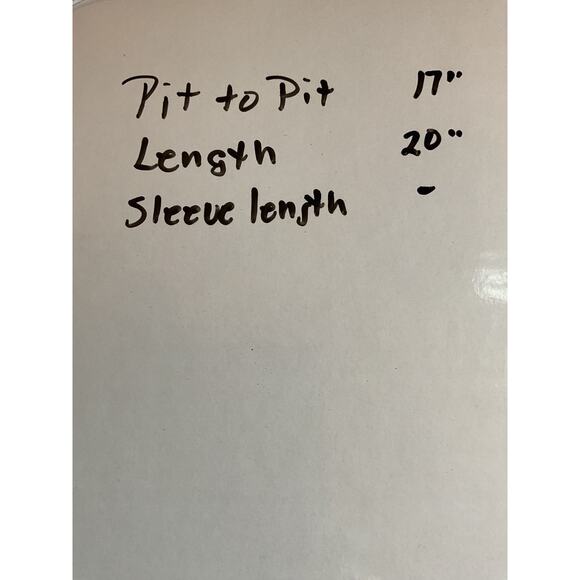 Pit to Pit 17"
Length 20"
Sleeve length -